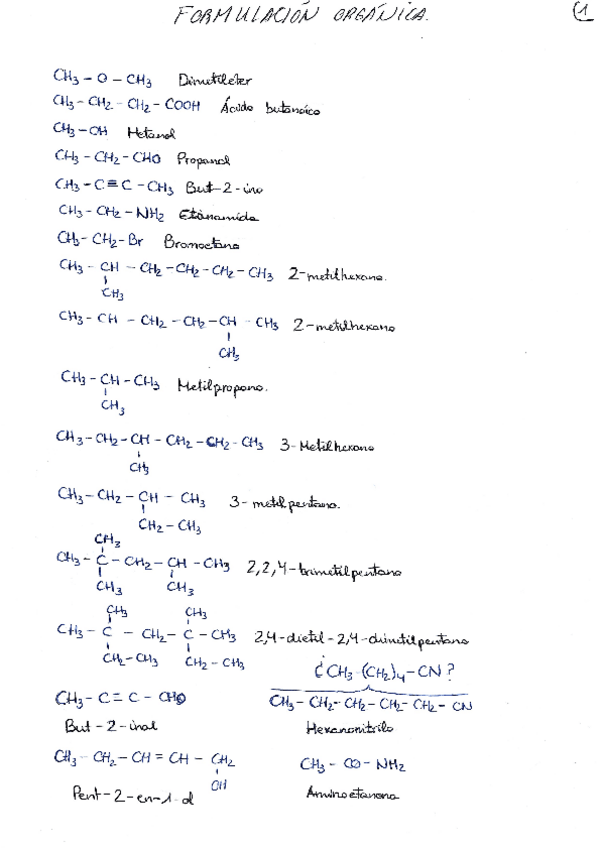 FORMULACIÓN ORGÁNICA.
1
CH₃ – O – CH₃ Dimetiléter
CH₃ – CH₂ – CH₂ – COOH Ácido butanoico
CH₃ – OH Metanol
CH₃ – CH₂ – CHO Propanal
CH₃ – C ≡ C – CH₃ But-2-ino
CH₃ – CH₂ – NH₂ Etanamida
CH₃ – CH₂ – Br Bromoetano
CH₃ – CH – CH₂ – CH₂ – CH₂ – CH₃ 2-metilhexano.
CH₃
CH₃ – CH – CH₂ – CH₂ – CH – CH₃ 2-metilhexano
CH₃
CH₃ – CH – CH₃ Metilpropano.
CH₃
CH₃ – CH₂ – CH – CH₂ – CH₂ – CH₃ 3-Metilhexano
CH₃
CH₃ – CH₂ – CH – CH₃ 3-metilpentano.
CH₂ – CH₃
CH₃
CH₃ – C – CH₂ – CH – CH₃ 2,2,4-trimetilpentano
CH₃ CH₃
CH₃ CH₃
CH₃ – C – CH₂ – C – CH₃ 2,4-dietil-2,4-dimetilpentano
CH₂ – CH₃ CH₂ – CH₃
¿CH₃-(CH₂)₄-CN?
CH₃ – C = C – CHO CH₃ – CH₂ – CH₂ – CH₂ – CH₂ – CN
But-2-inal Hexanonitrilo
CH₃ – CH₂ – CH = CH – CH₂ CH₃ – CO – NH₂
OH
Pent-2-en-1-ol Aminoetanona